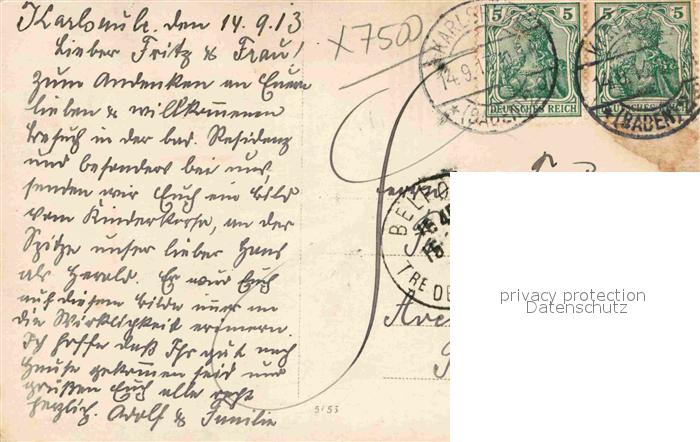 Karlsruhe, den 14.9.13
Lieber Fritz & Frau!
Zum Andenken an Euren
lieben & willkommenen
Besuch in der bad. Residenz
und besonders bei uns,
senden wir Euch ein Bild
vom Kinderkorso, an der
Spitze unser lieber Hans
als Herold. Er wird Euch
auf diesem Bilde immer an
die Wirklichkeit erinnern.
Ich hoffe daß Ihr gut nach
Hause gekommen seid und
grüßen Euch alle recht
herzlich. Adolf & Familie
x7500
5 5
DEUTSCHES REICH
5 5
DEUTSCHES REICH
14.9.1
(BADEN)
(BADEN)
BELFO
TRE DE
privacy protection
Datenschutz
5/53